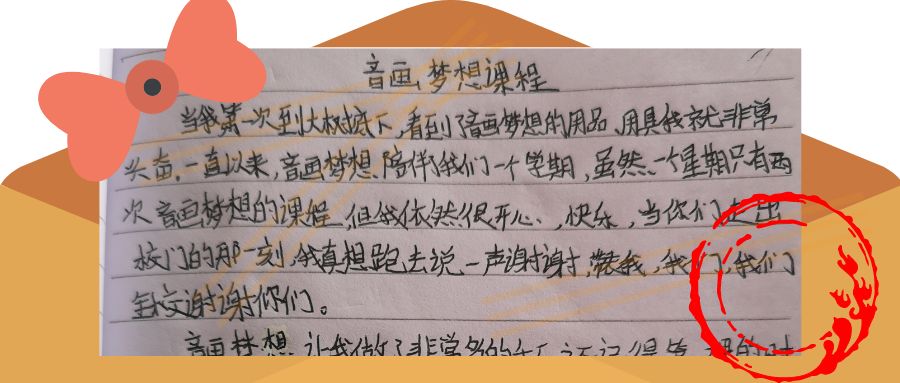 音画梦想课程
当我第一次到大树底下,看到了音画梦想的用品、用具我就非常
兴奋,一直以来,音画梦想陪伴了我们一个学期,虽然一个星期只有两
次音画梦想的课程,但我依然很开心、快乐,当你们走出
校门的那一刻,我真想跑去说一声谢谢,替我,我们,我们
全校谢谢你们。
音画梦想,让我做了非常多的